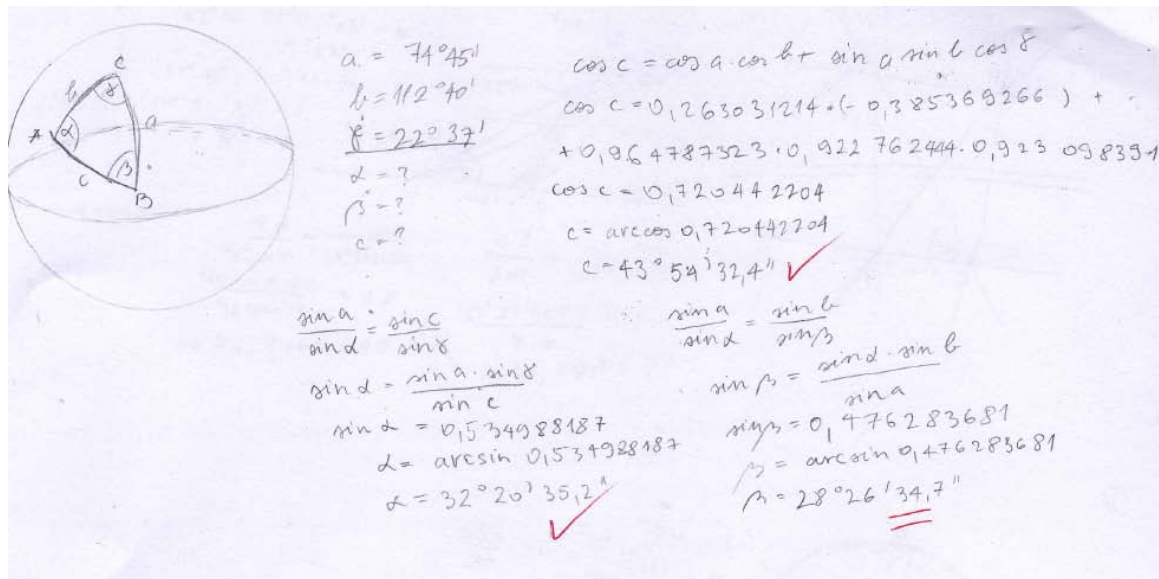 C
b
γ
A
α
a
c
β
B
a = 74°45'
b = 112°40'
γ = 22°37'
α = ?
β = ?
c = ?
cos c = cos a · cos b + sin a sin b cos γ
cos c = 0,263031214 · (- 0,385369266) +
+ 0,964787323 · 0,922762444 · 0,923098391
cos c = 0,720442204
c = arccos 0,720442204
c = 43°54'32,4"
sin a / sin α = sin c / sin γ
sin α = sin a · sin γ / sin c
sin α = 0,534988187
α = arcsin 0,534988187
α = 32°20'35,2"
sin a / sin α = sin b / sin β
sin β = sin α · sin b / sin a
sin β = 0,476283681
β = arcsin 0,476283681
β = 28°26'34,7"